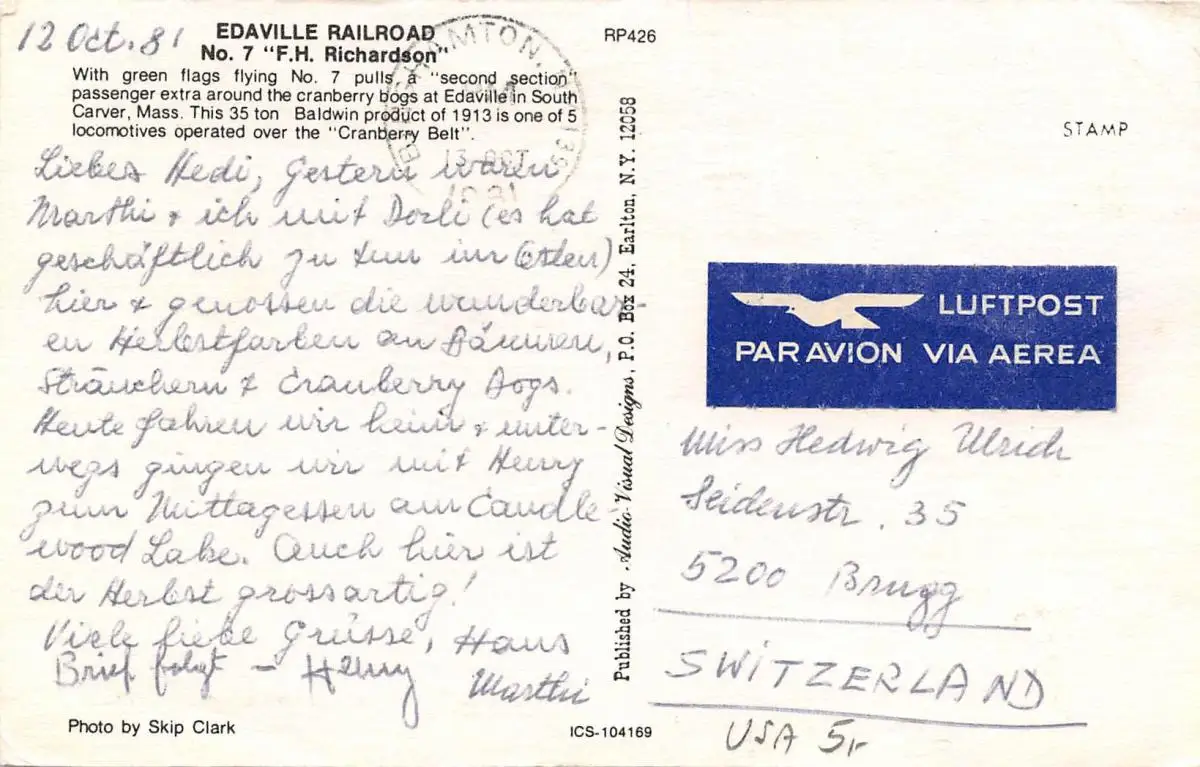 12 Oct. 81
EDAVILLE RAILROAD
No. 7 "F.H. Richardson"
With green flags flying No. 7 pulls a "second section"
passenger extra around the cranberry bogs at Edaville in South
Carver, Mass. This 35 ton Baldwin product of 1913 is one of 5
locomotives operated over the "Cranberry Belt".
Liebes Hedi, Gestern waren
Marthi + ich mit Dorli (es hat
geschäftlich zu tun im Osten)
hier + genossen die wunderbar-
en Herbstfarben an Bäumen,
Sträuchern + Cranberry Bogs.
Heute fahren wir heim + unter-
wegs gingen wir mit Henry
zum Mittagessen am Candle-
wood Lake. Auch hier ist
der Herbst grossartig!
Viele liebe Grüsse, Haus
Brief folgt - Henry Marthi
Photo by Skip Clark
Published by Audio-Visual Designs, P.O. Box 24, Earlton, N.Y. 12058
ICS-104169
RP426
13 OCT
1981
STAMP
LUFTPOST
PAR AVION VIA AEREA
Miss Hedwig Ulrich
Seidenstr. 35
5200 Brugg
SWITZERLAND
USA 5r